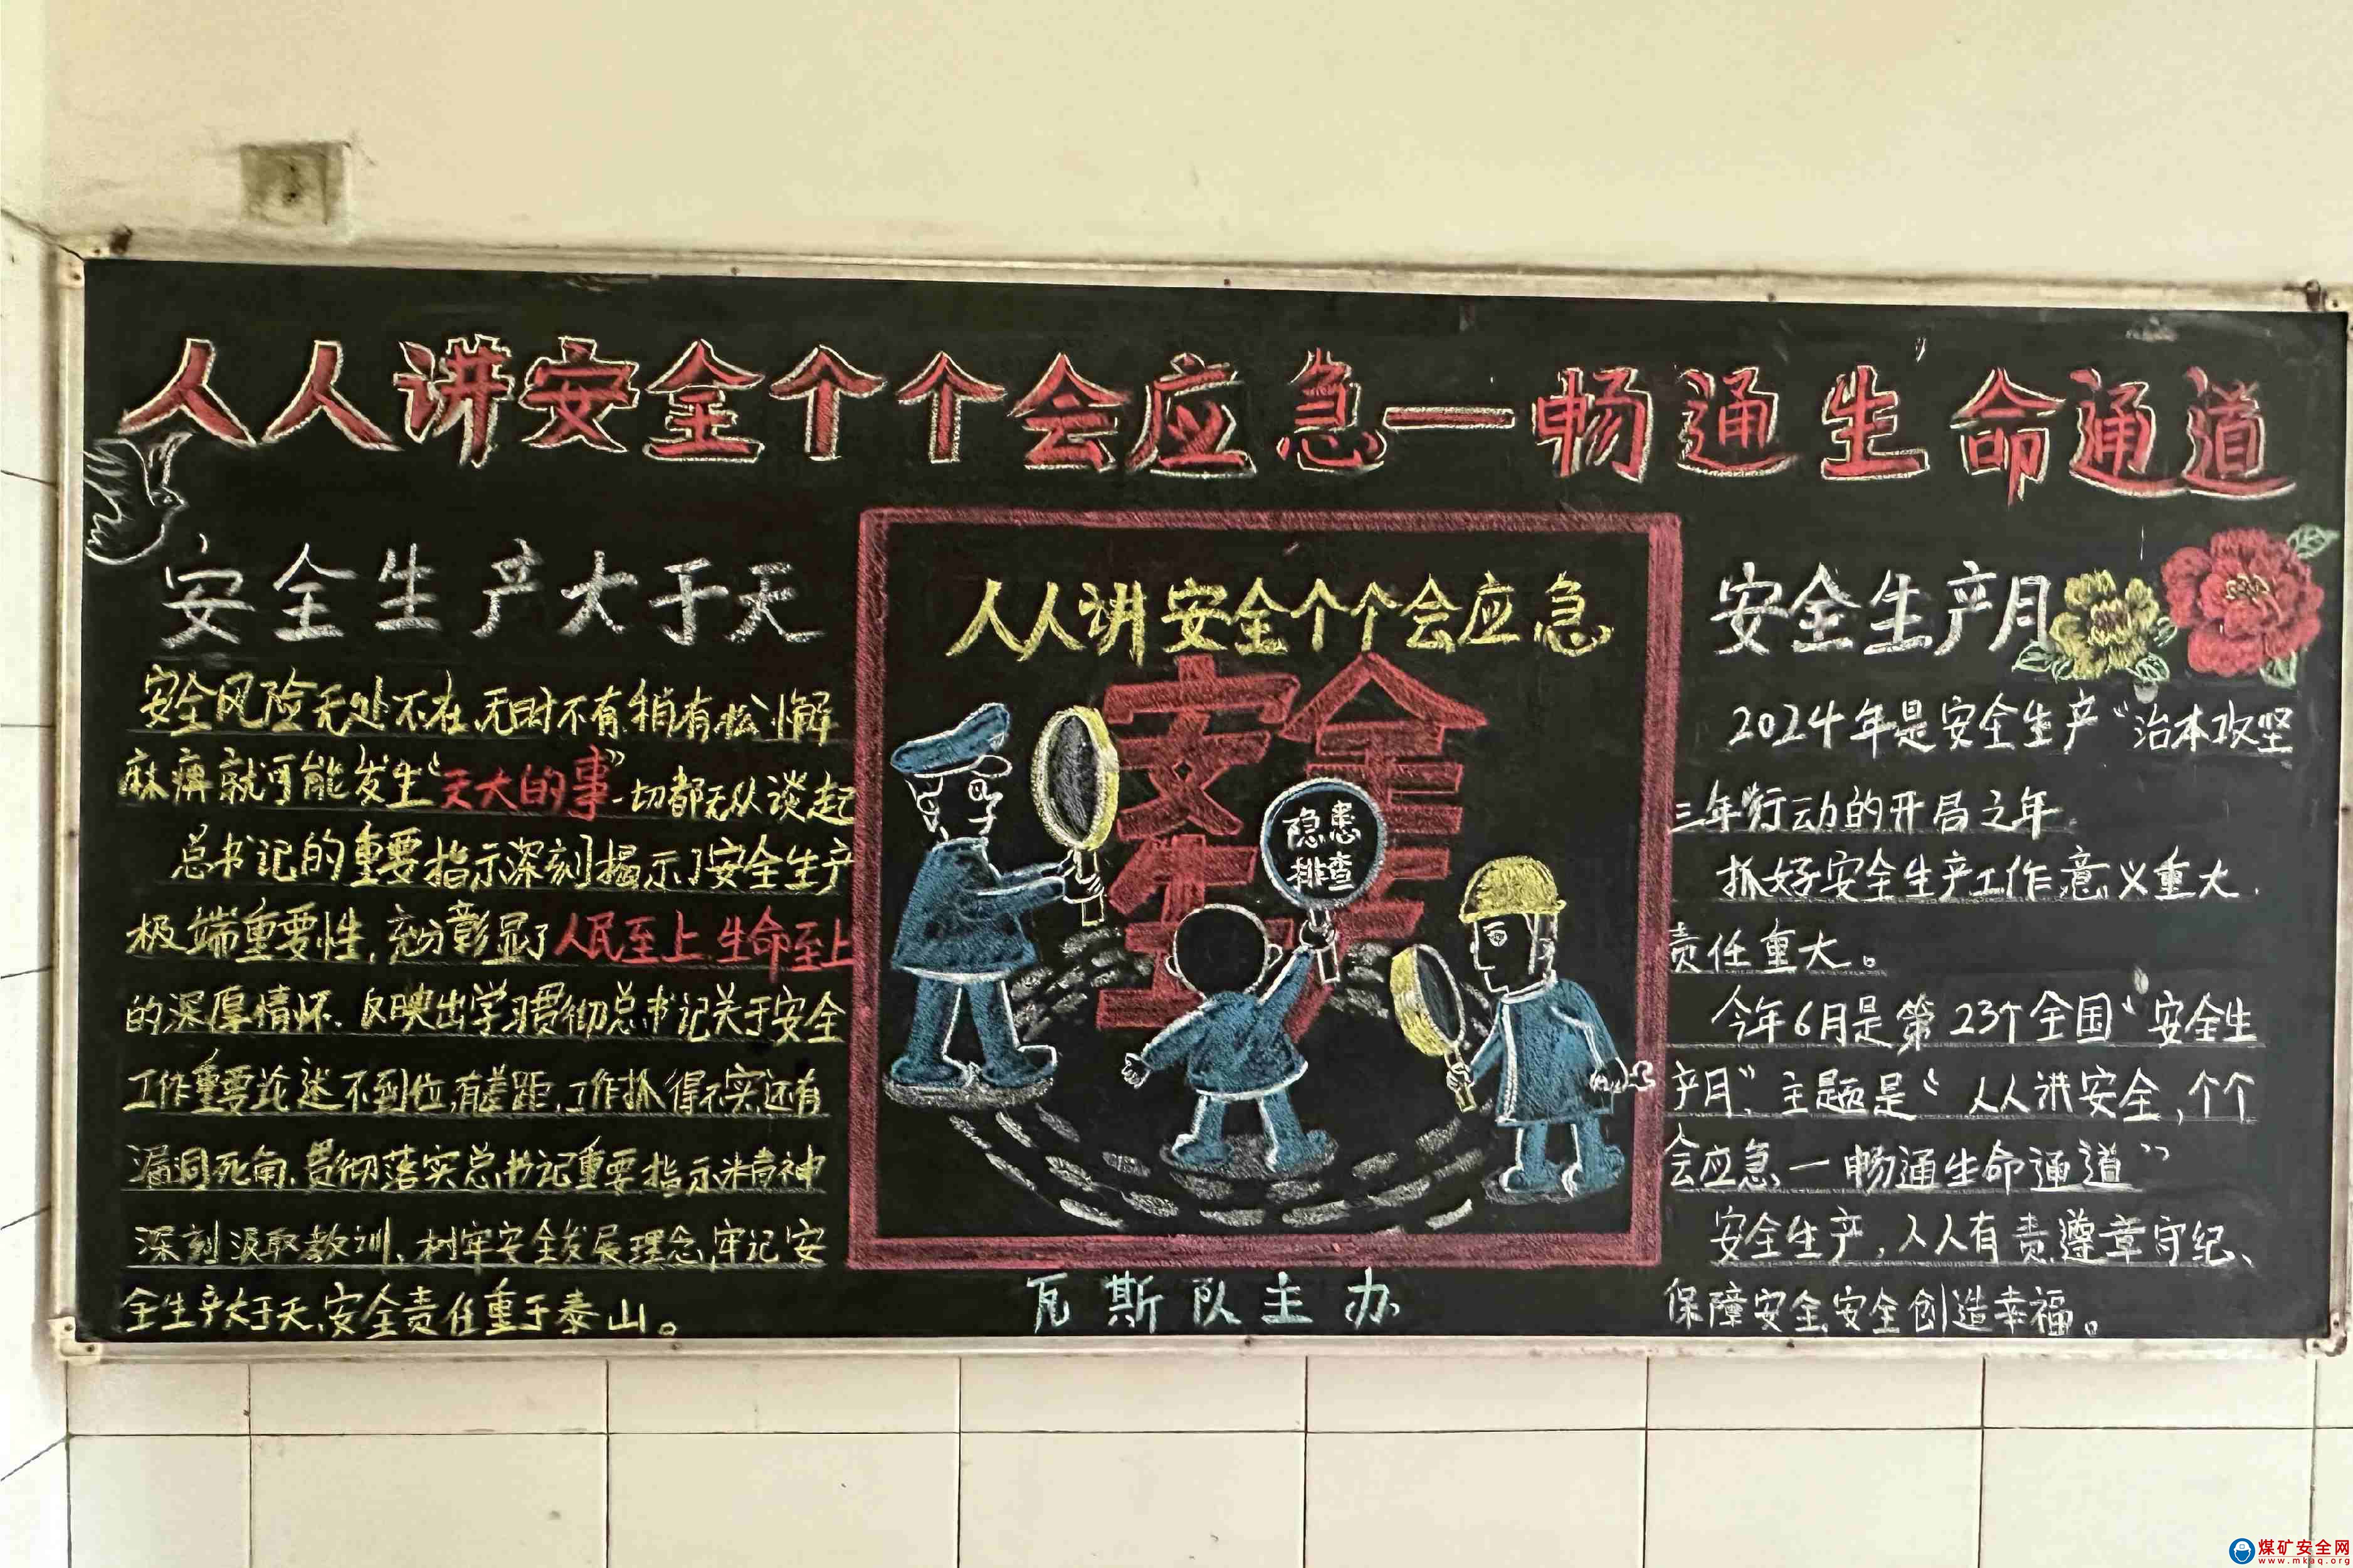 人人讲安全个个会应急—畅通生命通道
安全生产大于天
安全风险无处不在、无时不有,稍有松懈
麻痹就可能发生“天大的事”一切都无从谈起
总书记的重要指示深刻揭示了安全生产
极端重要性,充分彰显了人民至上、生命至上
的深厚情怀、反映出学习贯彻总书记关于安全
工作重要论述不到位,有差距,工作抓得不实,还有
漏洞死角、贯彻落实总书记重要指示精神
深刻汲取教训、树牢安全发展理念,牢记安
全生产大于天、安全责任重于泰山。
人人讲安全个个会应急
安全
生
隐患
排查
瓦斯队主办
安全生产月
2024年是安全生产“治本攻坚
三年”行动的开局之年
抓好安全生产工作意义重大
责任重大。
今年6月是第23个全国“安全生
产月”主题是“人人讲安全,个个
会应急一畅通生命通道”
安全生产,人人有责,遵章守纪、
保障安全,安全创造幸福。
煤矿安全网
www.mkaq.org